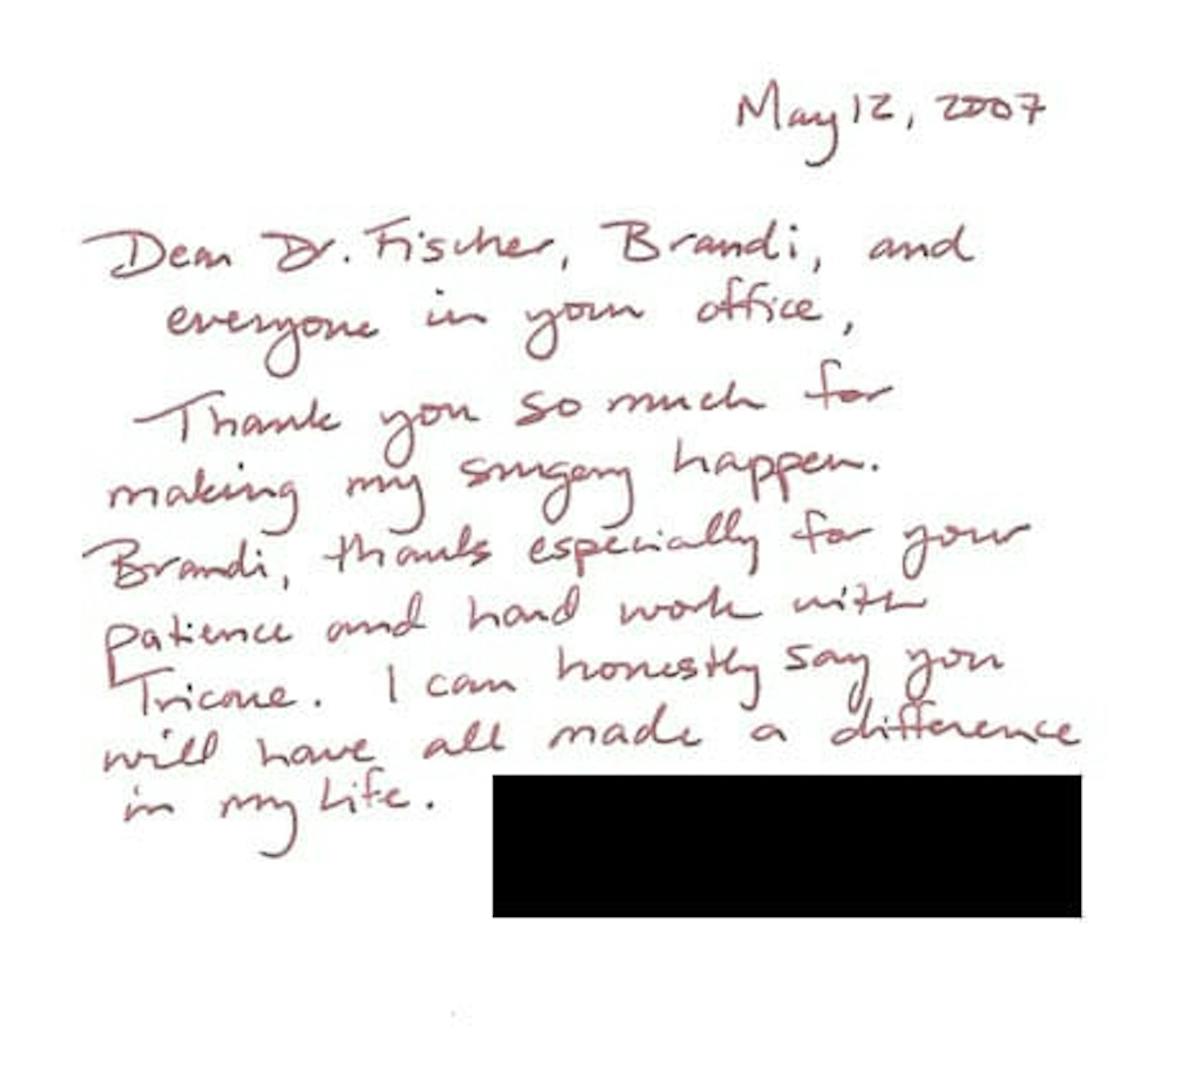 May 12, 2007
Dear Dr. Fischer, Brandi, and
everyone in your office,
Thank you so much for
making my surgery happen.
Brandi, thanks especially for your
patience and hard work with
Tricare. I can honestly say you
will have all made a difference
in my life.